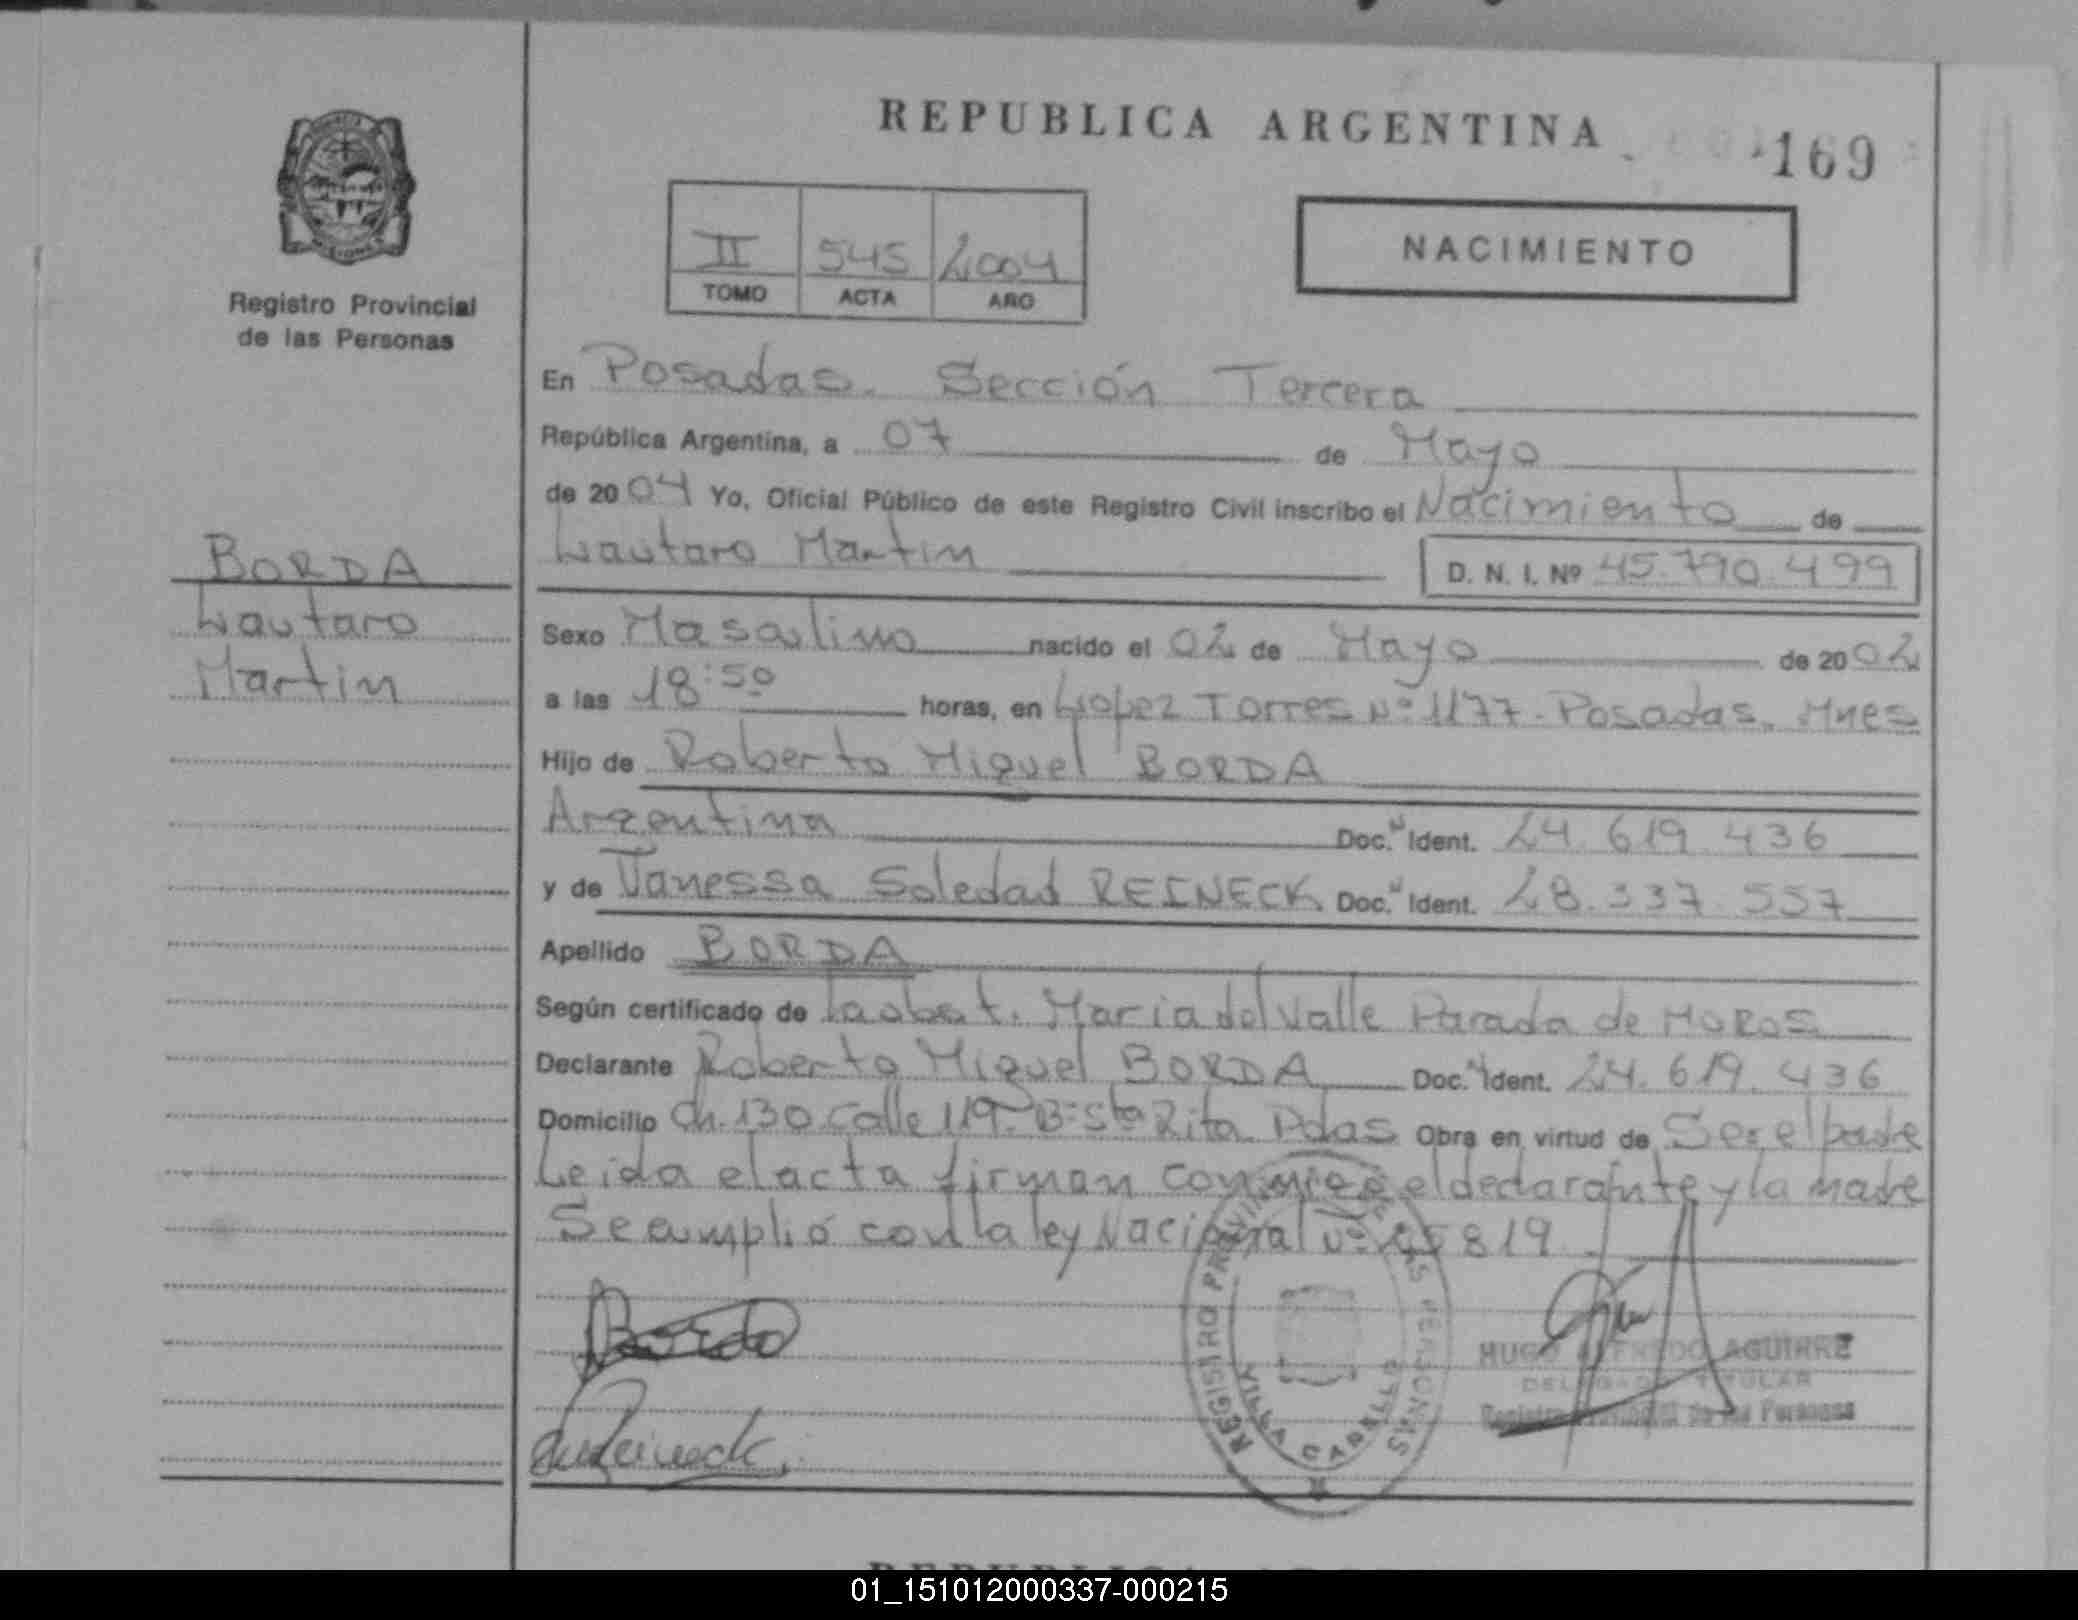 REPUBLICA ARGENTINA
169
Registro Provincial
de las Personas
II 545 2004
TOMO ACTA AÑO
NACIMIENTO
En Posadas. Sección Tercera
República Argentina, a 07 de Mayo
de 2004 Yo, Oficial Público de este Registro Civil inscribo el Nacimiento de
Lautaro Martin D. N. I. Nº 45.790.499
BORDA
Lautaro
Martin
Sexo Masculino nacido el 02 de Mayo de 2002
a las 18:50 horas, en Lopez Torres Nº 1177. Posadas. Mnes
Hijo de Roberto Miguel BORDA
Argentina Doc. N Ident. 24.619.436
y de Vanessa Soledad REINECK Doc. N Ident. 28.337.557
Apellido BORDA
Según certificado de la obst. Maria del Valle Parada de MOROS
Declarante Roberto Miguel BORDA Doc. N Ident. 24.619.436
Domicilio Ch. 130 Calle 119. Bº Sta Rita Pdas Obra en virtud de Ser el padre
Leida el acta firman conmigo el declarante y la madre
Se cumplió con la ley Nacional Nº 25819
Borda
Reineck
REGISTRO PROVINCIAL DE LAS PERSONAS
VILLA CABELLO
HUGO ALFREDO AGUIRRE
DELEGADO TITULAR
Registro Provincial de las Personas
01_151012000337-000215